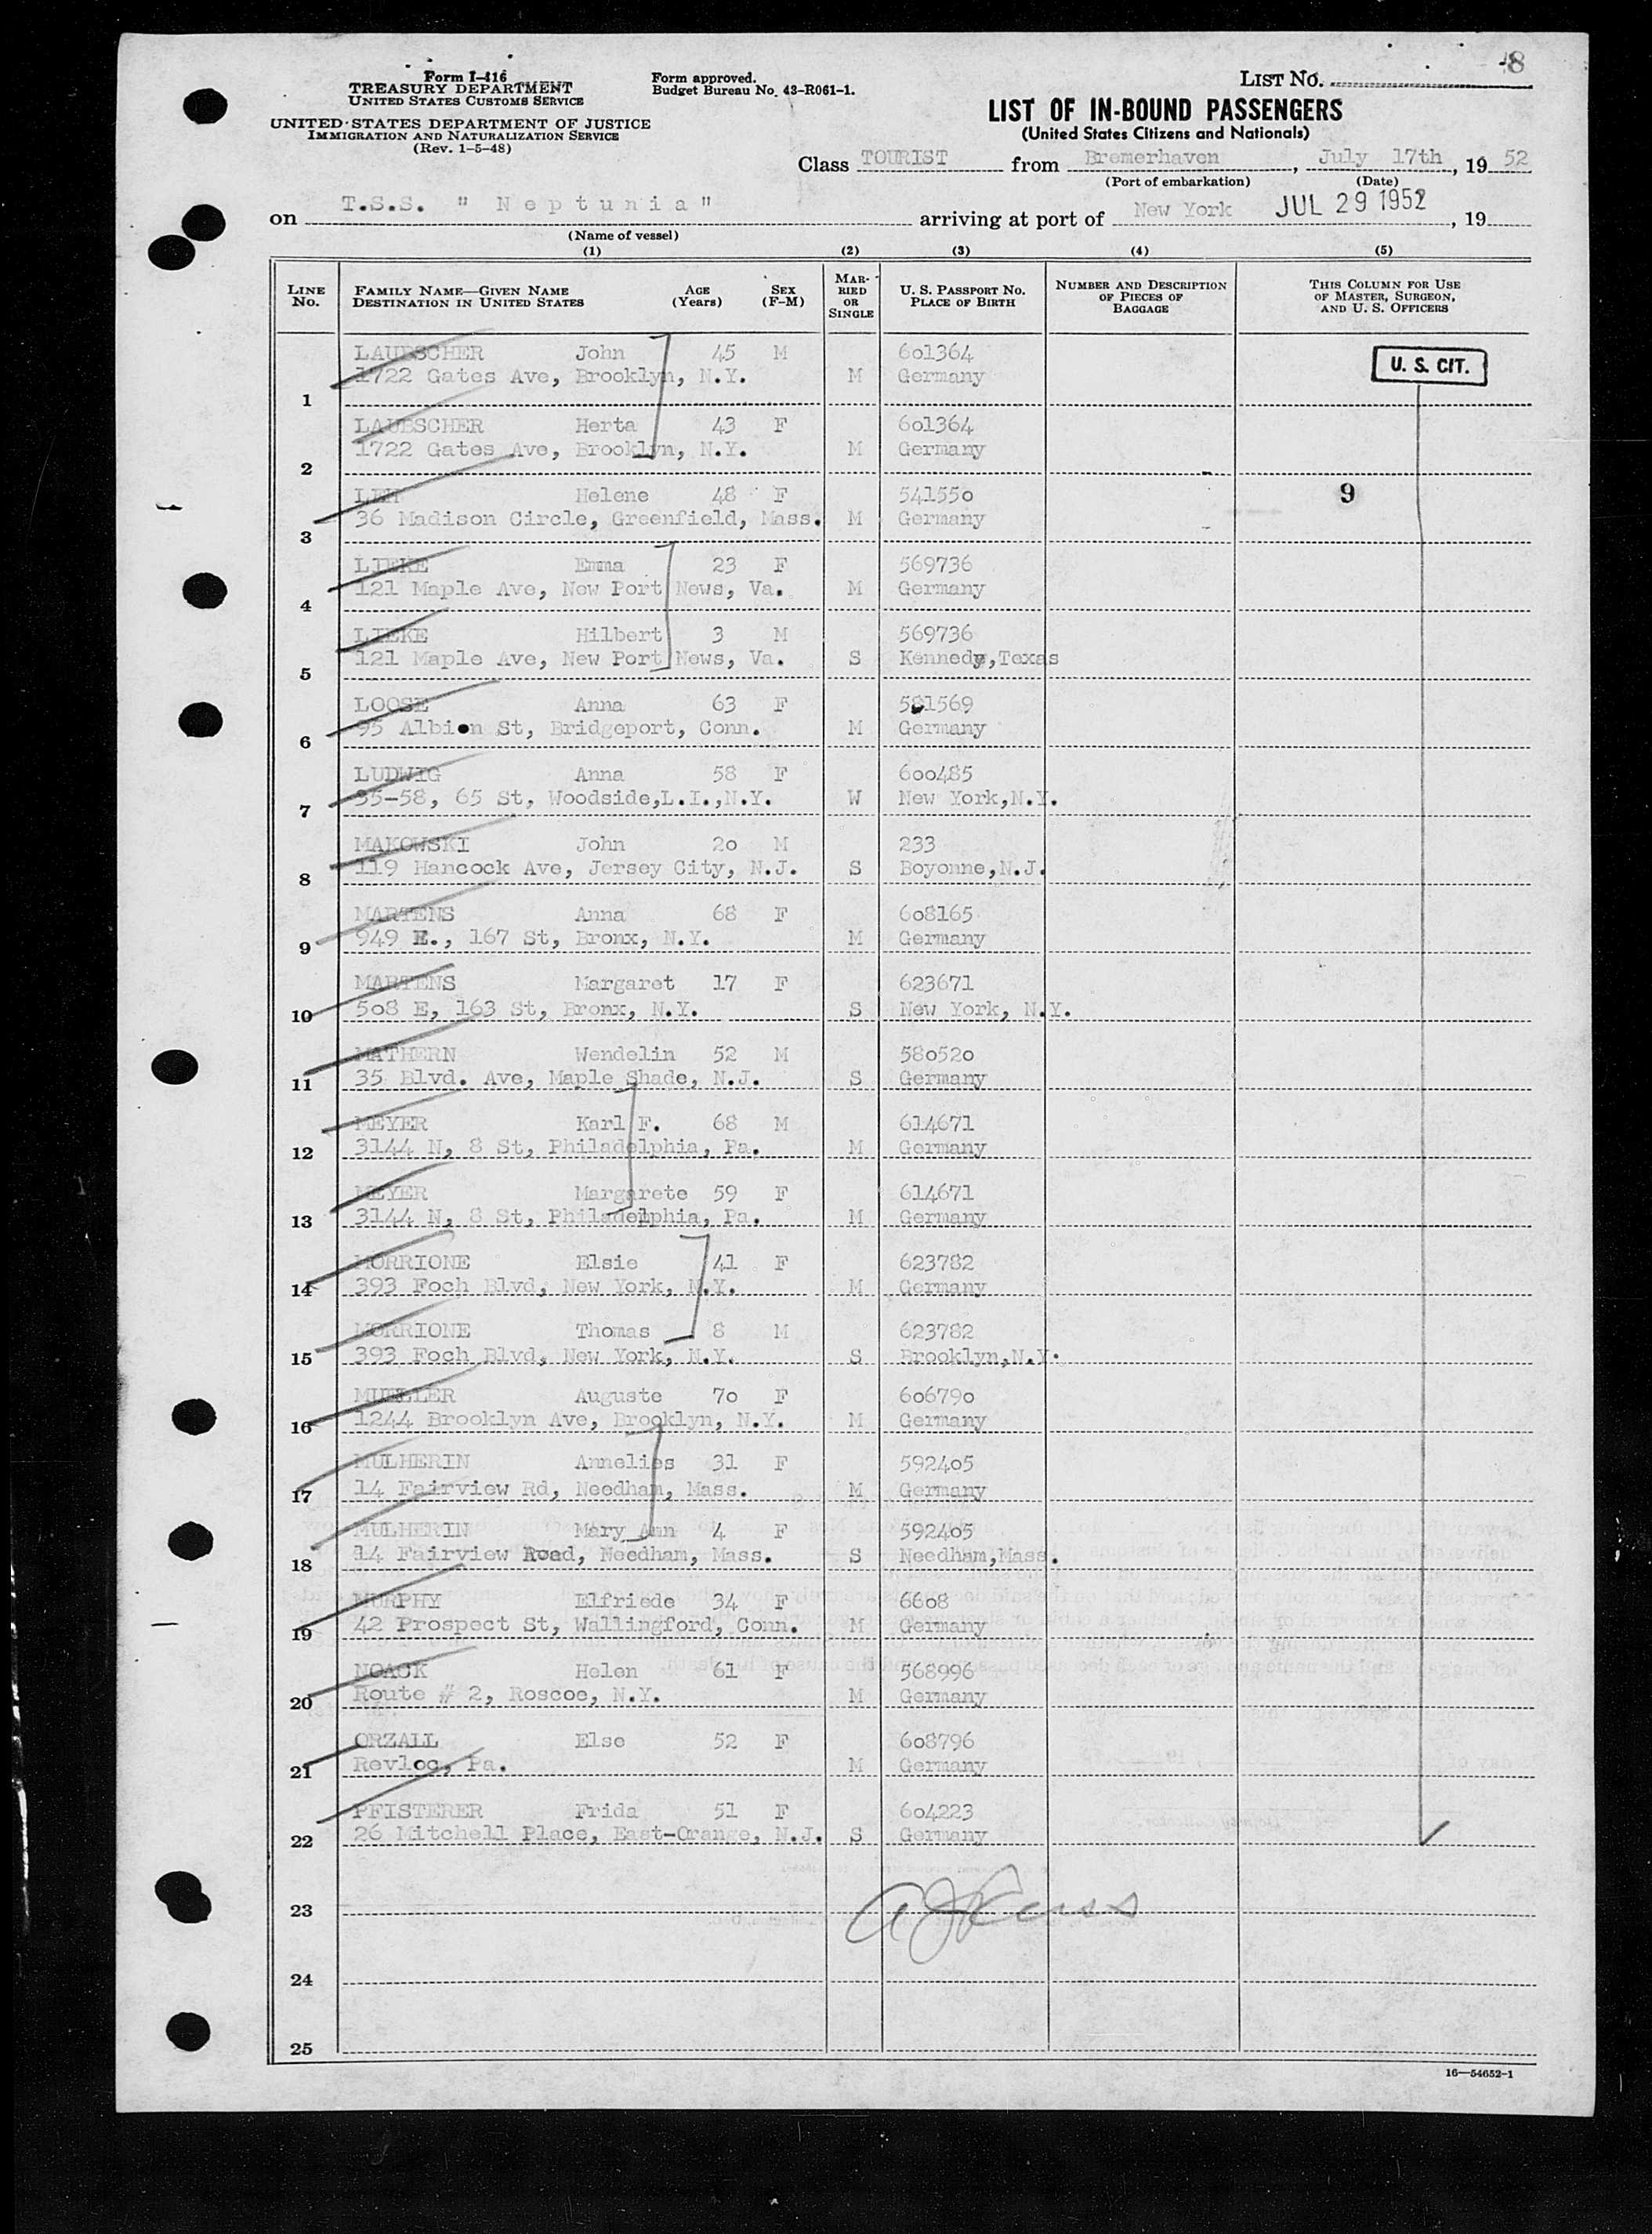 8
Form I-416
TREASURY DEPARTMENT
UNITED STATES CUSTOMS SERVICE
UNITED STATES DEPARTMENT OF JUSTICE
IMMIGRATION AND NATURALIZATION SERVICE
(Rev. 1-5-48)
Form approved.
Budget Bureau No. 43-R061-1.
LIST NO.
LIST OF IN-BOUND PASSENGERS
(United States Citizens and Nationals)
Class TOURIST from Bremerhaven, July 17th, 19 52
(Port of embarkation) (Date)
on T.S.S. " Neptunia" arriving at port of New York JUL 29 1952, 19
(Name of vessel)
(1) (2) (3) (4) (5)
LINE NO. FAMILY NAME—GIVEN NAME DESTINATION IN UNITED STATES AGE (Years) SEX (F-M) MARRIED OR SINGLE U. S. PASSPORT NO. PLACE OF BIRTH NUMBER AND DESCRIPTION OF PIECES OF BAGGAGE THIS COLUMN FOR USE OF MASTER, SURGEON, AND U. S. OFFICERS
LAUBSCHER John 45 M 601364 U. S. CIT.
1722 Gates Ave, Brooklyn, N.Y. M Germany
1
LAUBSCHER Herta 43 F 601364
1722 Gates Ave, Brooklyn, N.Y. M Germany
2
LEH Helene 48 F 541550 9
36 Madison Circle, Greenfield, Mass. M Germany
3
LIEKE Emma 23 F 569736
121 Maple Ave, New Port News, Va. M Germany
4
LIEKE Hilbert 3 M 569736
121 Maple Ave, New Port News, Va. S Kennedy,Texas
5
LOOSE Anna 63 F 581569
95 Albion St, Bridgeport, Conn. M Germany
6
LUDWIG Anna 58 F 600485
35-58, 65 St, Woodside,L.I.,N.Y. W New York,N.Y.
7
MAKOWSKI John 20 M 233
119 Hancock Ave, Jersey City, N.J. S Boyonne,N.J.
8
MARTENS Anna 68 F 608165
949 E., 167 St, Bronx, N.Y. M Germany
9
MARTENS Margaret 17 F 623671
508 E, 163 St, Bronx, N.Y. S New York, N.Y.
10
MATHERN Wendelin 52 M 580520
35 Blvd. Ave, Maple Shade, N.J. S Germany
11
MEYER Karl F. 68 M 614671
3144 N, 8 St, Philadelphia, Pa. M Germany
12
MEYER Margarete 59 F 614671
3144 N, 8 St, Philadelphia, Pa. M Germany
13
MORRIONE Elsie 41 F 623782
393 Foch Blvd, New York, N.Y. M Germany
14
MORRIONE Thomas 8 M 623782
393 Foch Blvd, New York, N.Y. S Brooklyn,N.Y.
15
MUELLER Auguste 70 F 606790
1244 Brooklyn Ave, Brooklyn, N.Y. M Germany
16
MULHERIN Annelies 31 F 592405
14 Fairview Rd, Needham, Mass. M Germany
17
MULHERIN Mary Ann 4 F 592405
14 Fairview Road, Needham, Mass. S Needham,Mass.
18
MURPHY Elfriede 34 F 6608
42 Prospect St, Wallingford, Conn. M Germany
19
NOACK Helen 61 F 568996
Route # 2, Roscoe, N.Y. M Germany
20
ORZALL Else 52 F 608796
Revloc, Pa. M Germany
21
PFISTERER Frida 51 F 604223
26 Mitchell Place, East-Orange, N.J. S Germany
22
23
24
25
16—54652-1